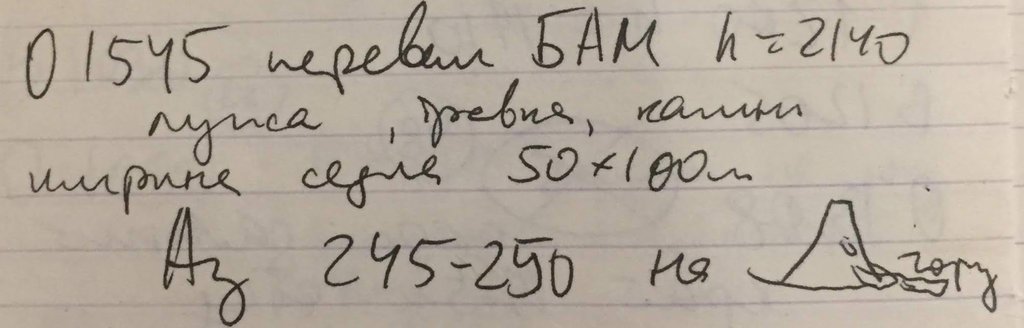 О 1545 перевал БАМ h=2140
луиса, травка, камни
ширина седла 50×100м
Аз 245-250 на гору